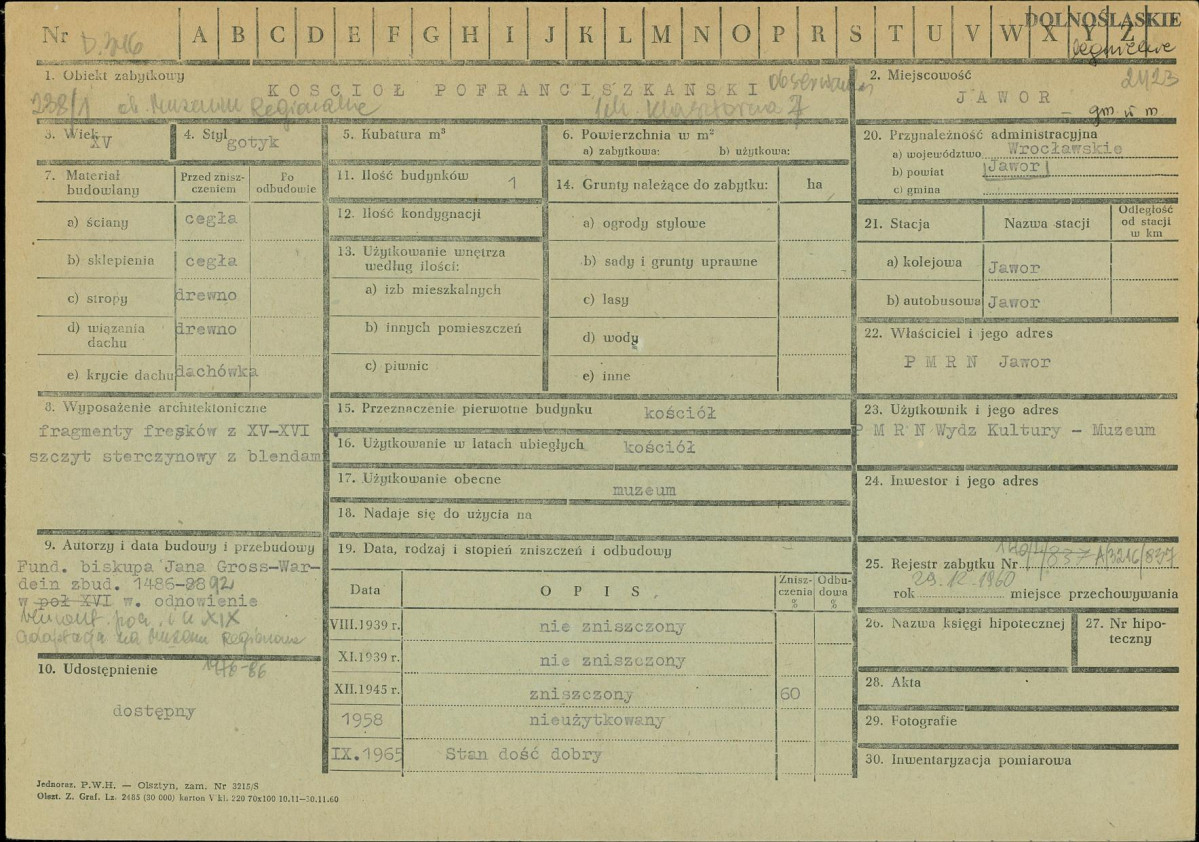 Nr D.3216 A B C D E F G H I J K L M N O P R S T U V W X Y Z DOLNOŚLĄSKIE
legnickie
1. Obiekt zabytkowy
KOSCIOŁ POFRANCISZKAŃSKI
238/1 ob. Muzeum Regionalne ul. Klasztorna 7
2. Miejscowość 2423
JAWOR
gm. w m
3. Wiek XV
4. Styl gotyk
5. Kubatura m³
6. Powierzchnia w m²
a) zabytkowa: b) użytkowa:
7. Materiał budowlany
Przed zniszczeniem
Po odbudowie
a) ściany cegła
b) sklepienia cegła
c) stropy drewno
d) wiązania dachu drewno
e) krycie dachu dachówka
8. Wyposażenie architektoniczne
fragmenty fresków z XV-XVI
szczyt sterczynowy z blendam
9. Autorzy i data budowy i przebudowy
Fund. biskupa Jana Gross-War-
dein zbud. 1486-8892
w poł XVI w. odnowienie
remont pocz. i k XIX
adaptacja na Muzeum Regionalne
1976-86
10. Udostępnienie
dostępny
11. Ilość budynków 1
12. Ilość kondygnacji
13. Użytkowanie wnętrza
według ilości:
a) izb mieszkalnych
b) innych pomieszczeń
c) piwnic
14. Grunty należące do zabytku: ha
a) ogrody stylowe
b) sady i grunty uprawne
c) lasy
d) wody
e) inne
15. Przeznaczenie pierwotne budynku kościół
16. Użytkowanie w latach ubiegłych kościół
17. Użytkowanie obecne muzeum
18. Nadaje się do użycia na
19. Data, rodzaj i stopień zniszczeń i odbudowy
Data OPIS Zniszczenia % Odbudowa %
VIII.1939 r. nie zniszczony
XI.1939 r. nie zniszczony
XII.1945 r. zniszczony 60
1958 nieużytkowany
IX.1965 Stan dość dobry
20. Przynależność administracyjna
a) województwo Wrocławskie
b) powiat Jawor
c) gmina
21. Stacja Nazwa stacji Odległość od stacji w km
a) kolejowa Jawor
b) autobusowa Jawor
22. Właściciel i jego adres
P M R N Jawor
23. Użytkownik i jego adres
P M R N Wydz Kultury - Muzeum
24. Inwestor i jego adres
25. Rejestr zabytku Nr 837 A/3216/837
29.12.1960
rok miejsce przechowywania
26. Nazwa księgi hipotecznej
27. Nr hipoteczny
28. Akta
29. Fotografie
30. Inwentaryzacja pomiarowa
Jednoraz. P.W.H. — Olsztyn, zam. Nr 3215/S
Olszt. Z. Graf. Lz. 2485 (30 000) karton V kl. 220 70x100 10.11—30.11.60